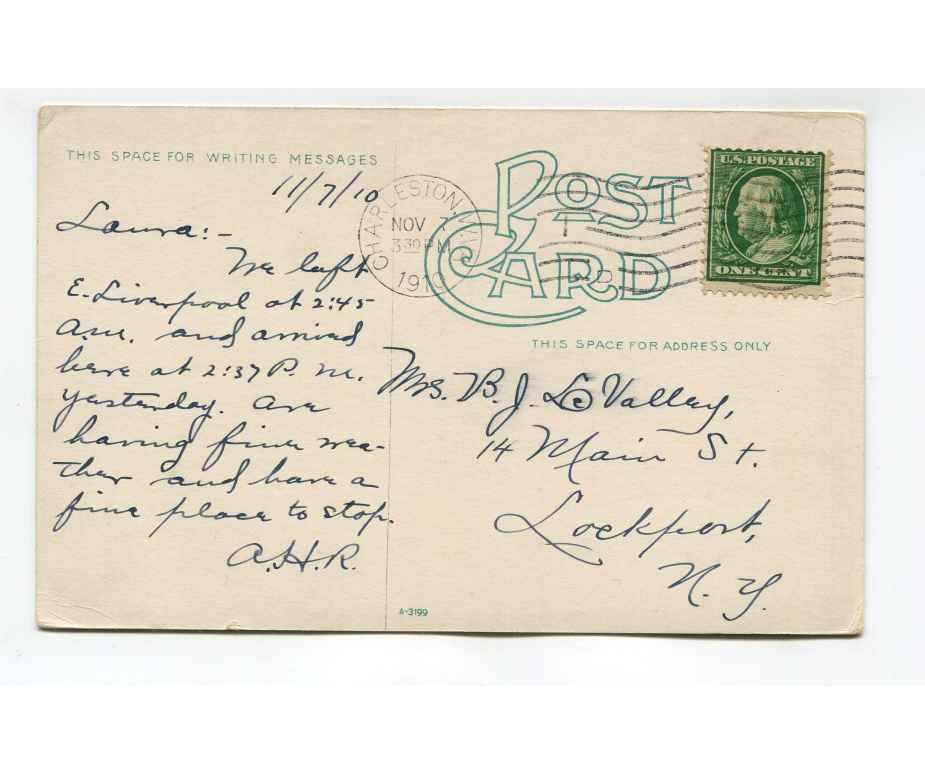 THIS SPACE FOR WRITING MESSAGES
11/7/10
Laura:-
We left
E. Liverpool at 2:45
A.M. and arrived
here at 2:37 P.M.
yesterday. Are
having fine wea-
ther and have a
fine place to stop.
A.H.R.
A-3199
CHARLESTON, W.VA.
NOV 7
3 30 PM
1910
POST
CARD
U.S. POSTAGE
ONE CENT
THIS SPACE FOR ADDRESS ONLY
Mrs. B. J. Le Valley,
14 Main St.
Lockport,
N. Y.